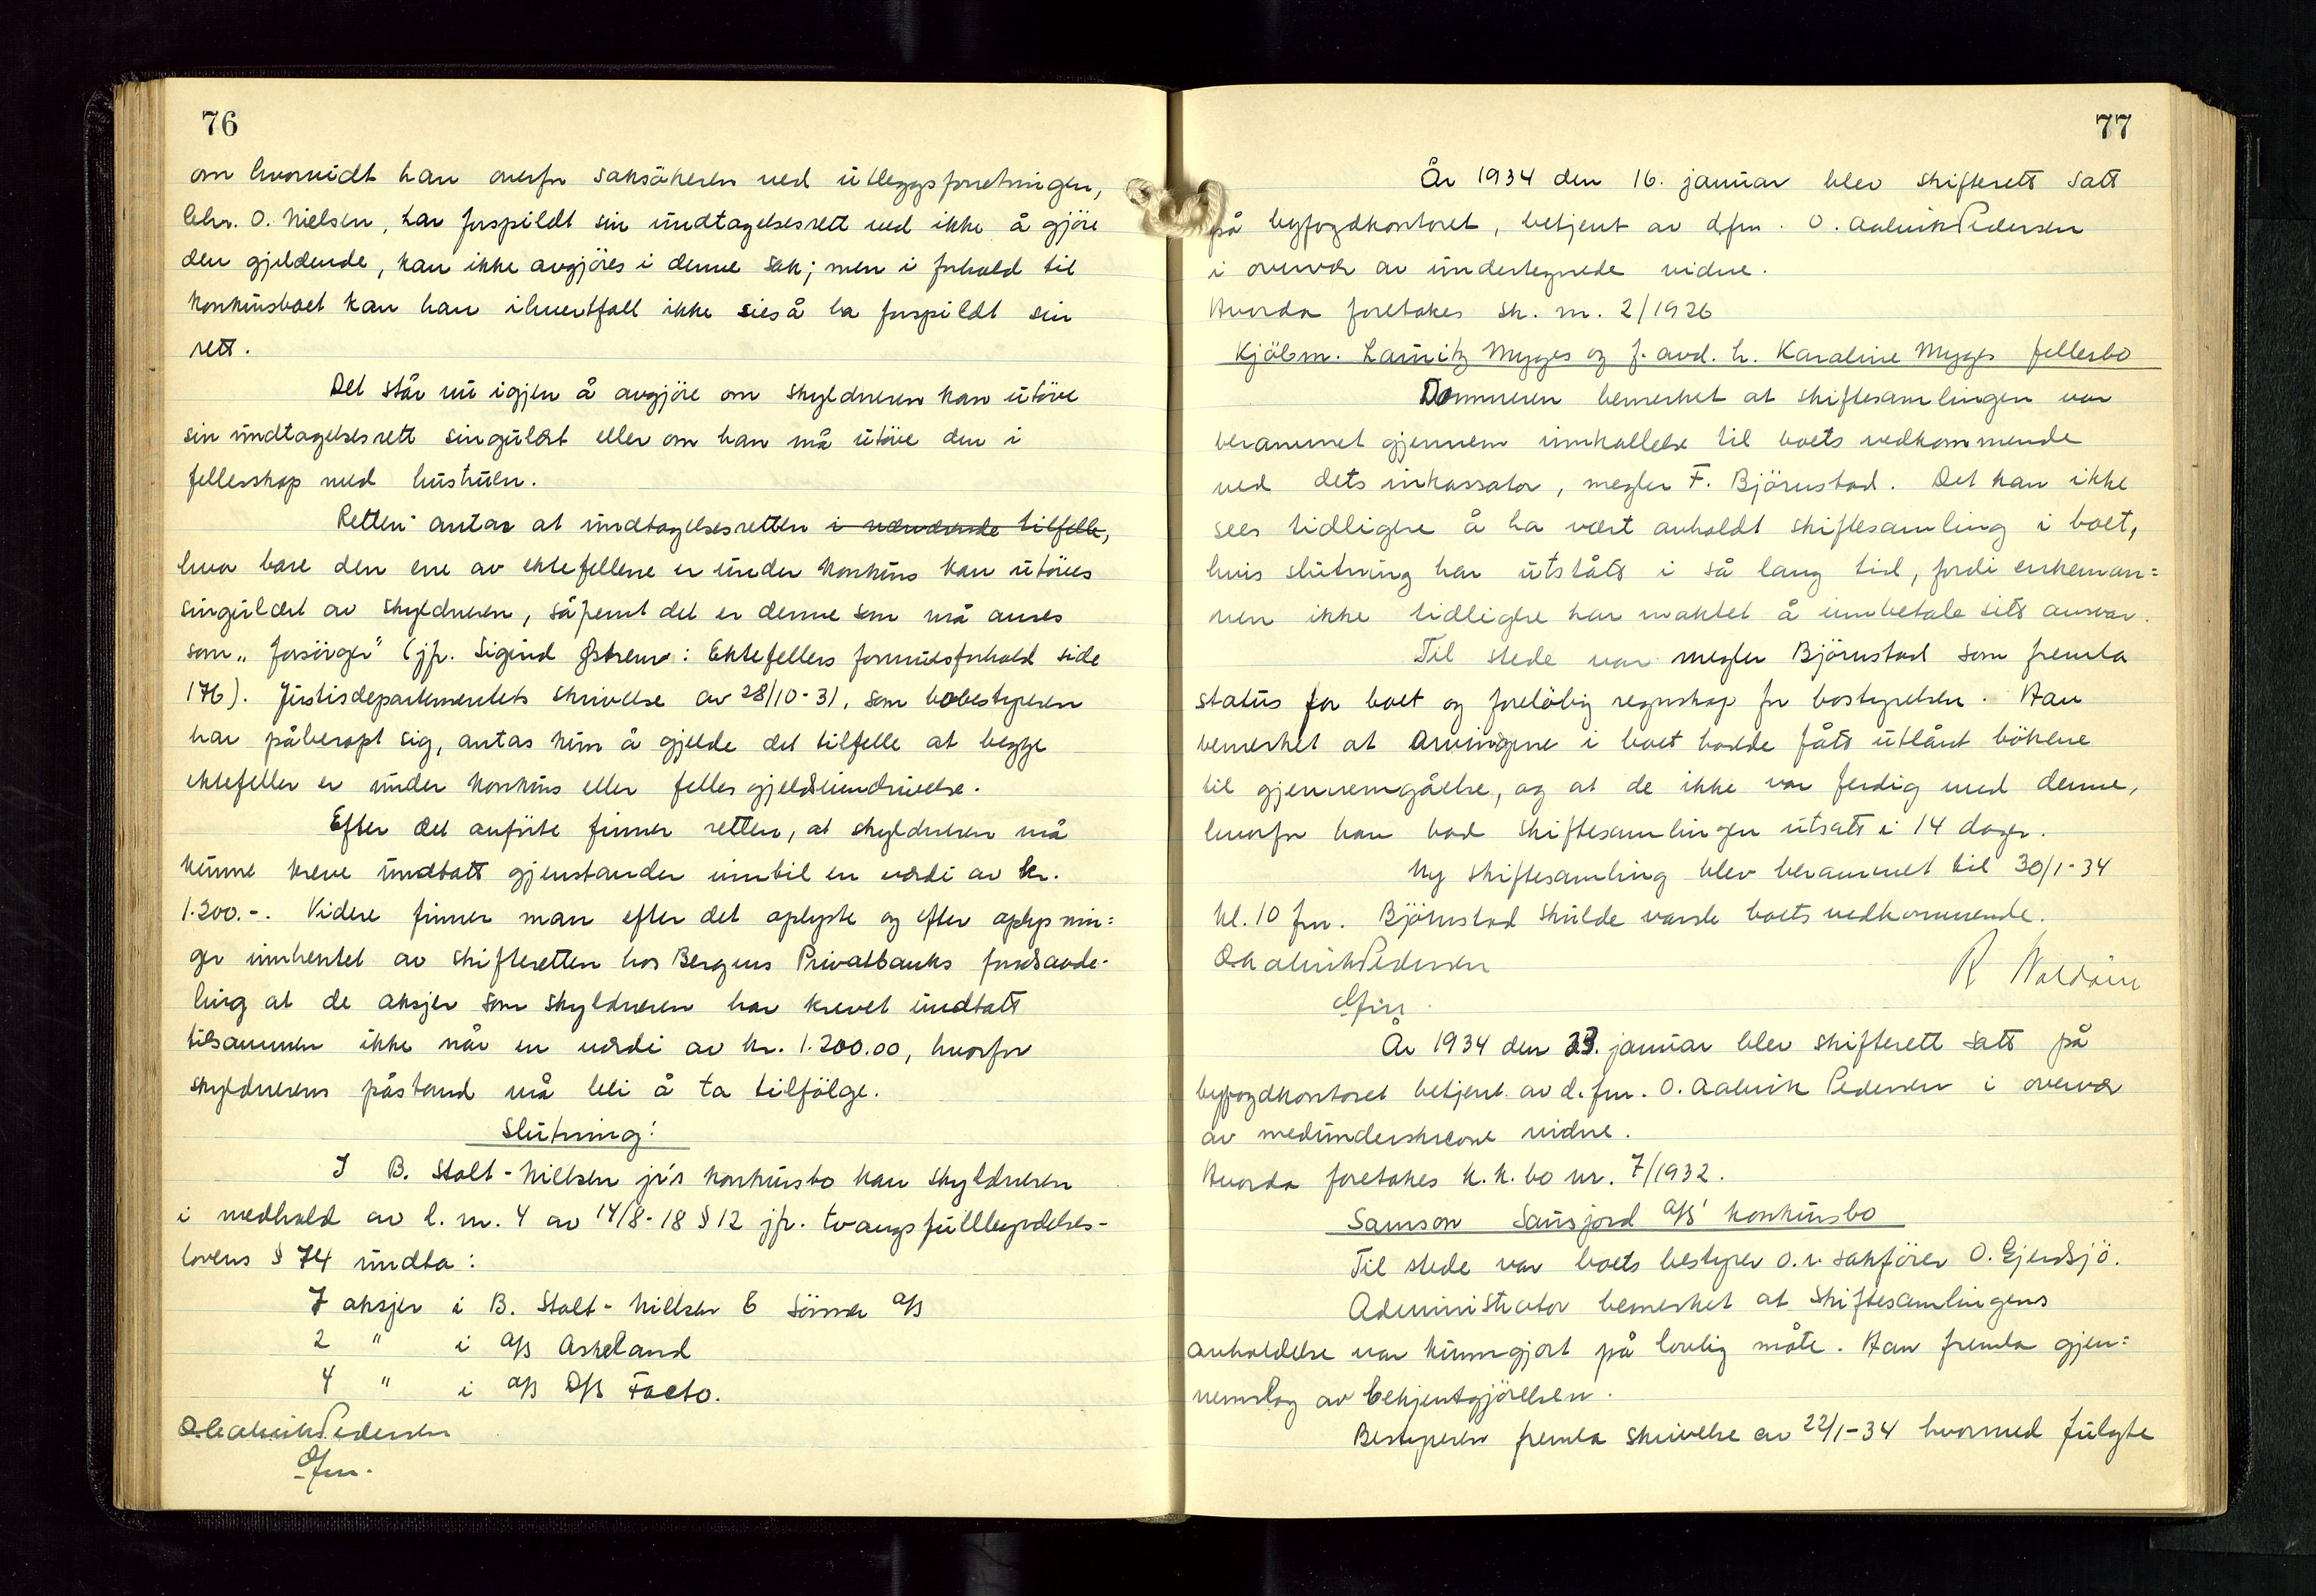 76
om hvorvidt han overfor saksökeren ved utleggsforretningen,
Chr. O. Nielsen, har forspildt sin undtagelsesrett ved ikke å gjöre
den gjeldende, kan ikke avgjöres i denne sak; men i forhold til
konkursboet kan han ihvertfall ikke sies å ha forspildt sin
rett.
Det står nu igjen å avgjöre om skyldneren kan utöve
sin undtagelsesrett singulært eller om han må utöve den i
fellesskap med hustruen.
Retten antar at undtagelsesretten i nærværende tilfelle,
hvor bare den ene av ektefellene er under konkurs kan utöves
singulært av skyldneren, såfremt det er denne som må anses
som „forsörger" (jfr. Sigurd Østrem: Ektefellers formuesforhold side
176). Justisdepartementets skrivelse av 28/10-31, som bobestyreren
har påberopt sig, antas kun å gjelde det tilfelle at begge
ektefeller er under konkurs eller felles gjeldsinndrivelse.
Efter det anförte finner retten, at skyldneren må
kunne kreve undtatt gjenstander inntil en verdi av kr.
1.200.-. Videre finner man efter det oplyste og efter oplysnin=
ger innhentet av skifteretten hos Bergens Privatbanks fondsavde-
ling at de aksjer som skyldneren har krevet undtatt
tilsammen ikke når en verdi av kr. 1.200.00, hvorfor
skyldnerens påstand må bli å ta tilfölge.
Slutning:
I B. Stolt-Nielsen jr's konkursbo kan skyldneren
i medhold av l. nr. 4 av 14/8-18 § 12 jfr. tvangsfullbyrdelses-
lovens § 74 undta:
7 aksjer i B. Stolt-Nielsen & Sönner A/S
2 " i A/S Askeland
4 " i A/S D/S Facto.
O. Aalvik Pedersen
dfm.
77
År 1934 den 16. januar blev skifterett satt
på byfogdkontoret, betjent av dfm. O. Aalvik Pedersen
i overvær av undertegnede vidne.
Hvorda foretokes sk. nr. 2/1926
Kjöbm. Lauritz Mygges og f. avd. h. Karoline Mygges fellesbo
Dommeren bemerket at skiftesamlingen var
berammet gjennem innkallelse til boets vedkommende
ved dets inkassator, megler F. Björnstad. Det kan ikke
sees tidligere å ha vært avholdt skiftesamling i boet,
hvis slutning har utstått i så lang tid, fordi enkeman=
nen ikke tidligere har maktet å innbetale sitt ansvar.
Til stede var megler Björnstad som fremla
status for boet og forelöbig regnskap for bostyrelsen. Han
bemerket at arvingene i boet hadde fått utlånt bökene
til gjennemgåelse, og at de ikke var ferdig med denne,
hvorfor han bad skiftesamlingen utsatt i 14 dager.
Ny skiftesamling blev berammet til 30/1-34
kl. 10 fm. Björnstad skulde varsle boets vedkommende.
O. Aalvik Pedersen
dfm.
År 1934 den 23. januar blev skifterett satt på
byfogdkontoret betjent av d.fm. O. Aalvik Pedersen i overvær
av medunderskrevne vidne.
Hvorda foretokes k.k. bo nr. 7/1932.
Samson Sausjord A/S' konkursbo
Til stede var boets bestyrer o.r. sakförer O. Gjerdsjö.
Administrator bemerket at skiftesamlingens
avholdelse var kunngjort på lovlig måte. Han fremla gjen=
nemslag av bekjentgjörelsen.
Bestyreren fremla skrivelse av 22/1-34 hvormed fulgte